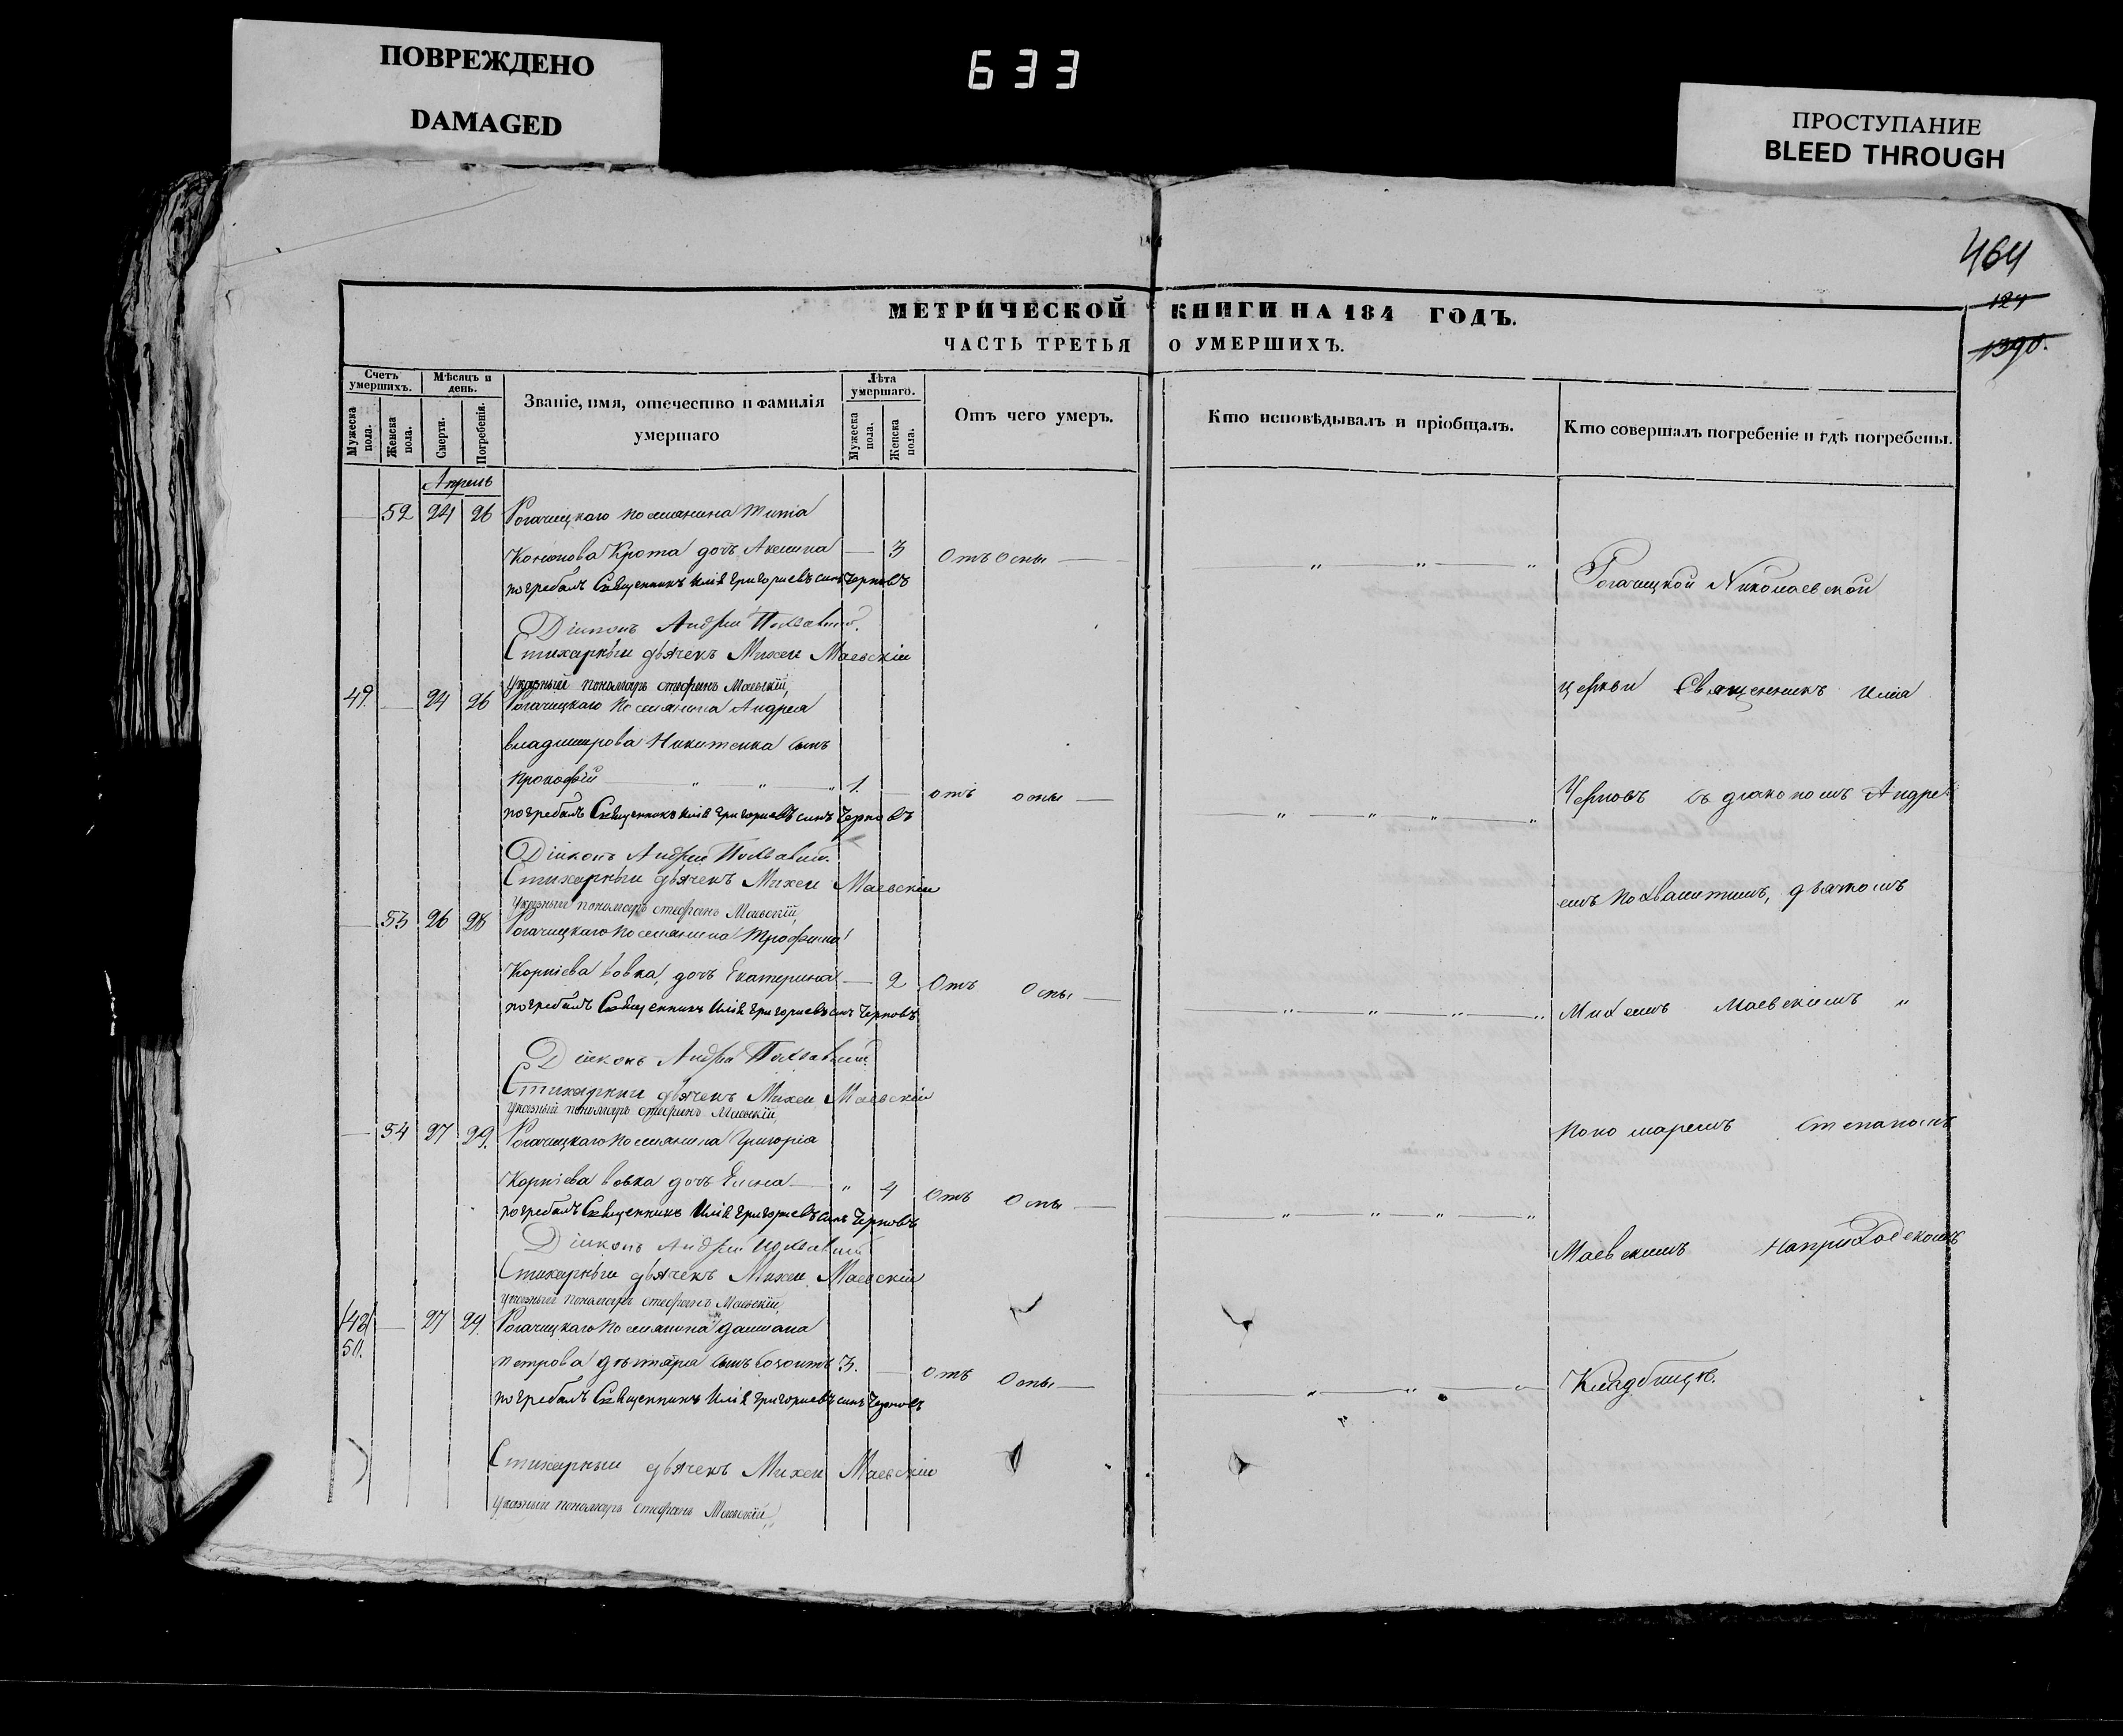 ПОВРЕЖДЕНО
DAMAGED
633
ПРОСТУПАНИЕ
BLEED THROUGH
464
124
1390.
МЕТРИЧЕСКОЙ КНИГИ НА 184 ГОДЪ.
ЧАСТЬ ТРЕТЬЯ О УМЕРШИХЪ.
Счетъ умершихъ.
Мѣсяцъ и день.
Званіе, имя, отечество и фамилія умершаго
Лѣта умершаго.
Отъ чего умеръ.
Кто исповѣдывалъ и пріобщалъ.
Кто совершалъ погребеніе и гдѣ погребены.
Мужеска пола.
Женска пола.
Смерти.
Погребенія.
Мужеска пола.
Женска пола.
Апрель
52 24 26 Рогачицкаго поселянина Тита
Кононова Крота дочь Акелина — 3 Отъ Оспы —
погребалъ Священникъ Илія Григориевъ сынъ Черновъ
Діиконъ Андрей
Стихарный дьячекъ Михей Маевскій
Указный пономарь Стефанъ Маевскій,
49. — 24 26 Рогачицкаго поселянина Андрея
Владимирова Никитенка сынъ
Прокофій „ „ „ 1. — отъ оспы —
погребалъ Священникъ Илія Григориевъ сынъ Черновъ
Діиконъ Андрей
Стихарный дьячекъ Михей Маевскій
Указный пономарь Стефанъ Маевскій,
— 53 26 28 Рогачицкаго поселянина Трофима
Корніева Вовка, дочь Екатерина — 2 Отъ Оспы —
погребалъ Священникъ Илія Григориевъ сынъ Черновъ
Діиконъ Андрей
Стихарный дьячекъ Михей Маевскій
Указный пономарь Стефанъ Маевскій,
— 54 27 29. Рогачицкаго поселянина Григорія
Корніева Вовка дочь Елена — „ 4 Отъ Оспы —
погребалъ Священникъ Илія Григориевъ сынъ Черновъ
Діиконъ Андрей
Стихарный дьячекъ Михей Маевскій
Указный пономарь Стефанъ Маевскій,
48 — 27 29. Рогачицкаго поселянина Даміана
50.
Петрова сынъ 3. — отъ Оспы —
погребалъ Священникъ Илія Григориевъ сынъ Черновъ
Стихарный дьячекъ Михей Маевскій
Указный пономарь Стефанъ Маевскій,
Рогачицкой Николаевской
церкви Священникъ Илія
Черновъ съ діакономъ Андре
емъ дьячкомъ
Михеемъ Маевскимъ „
пономаремъ Степаномъ
Маевскимъ на приходскомъ
Кладбищѣ.